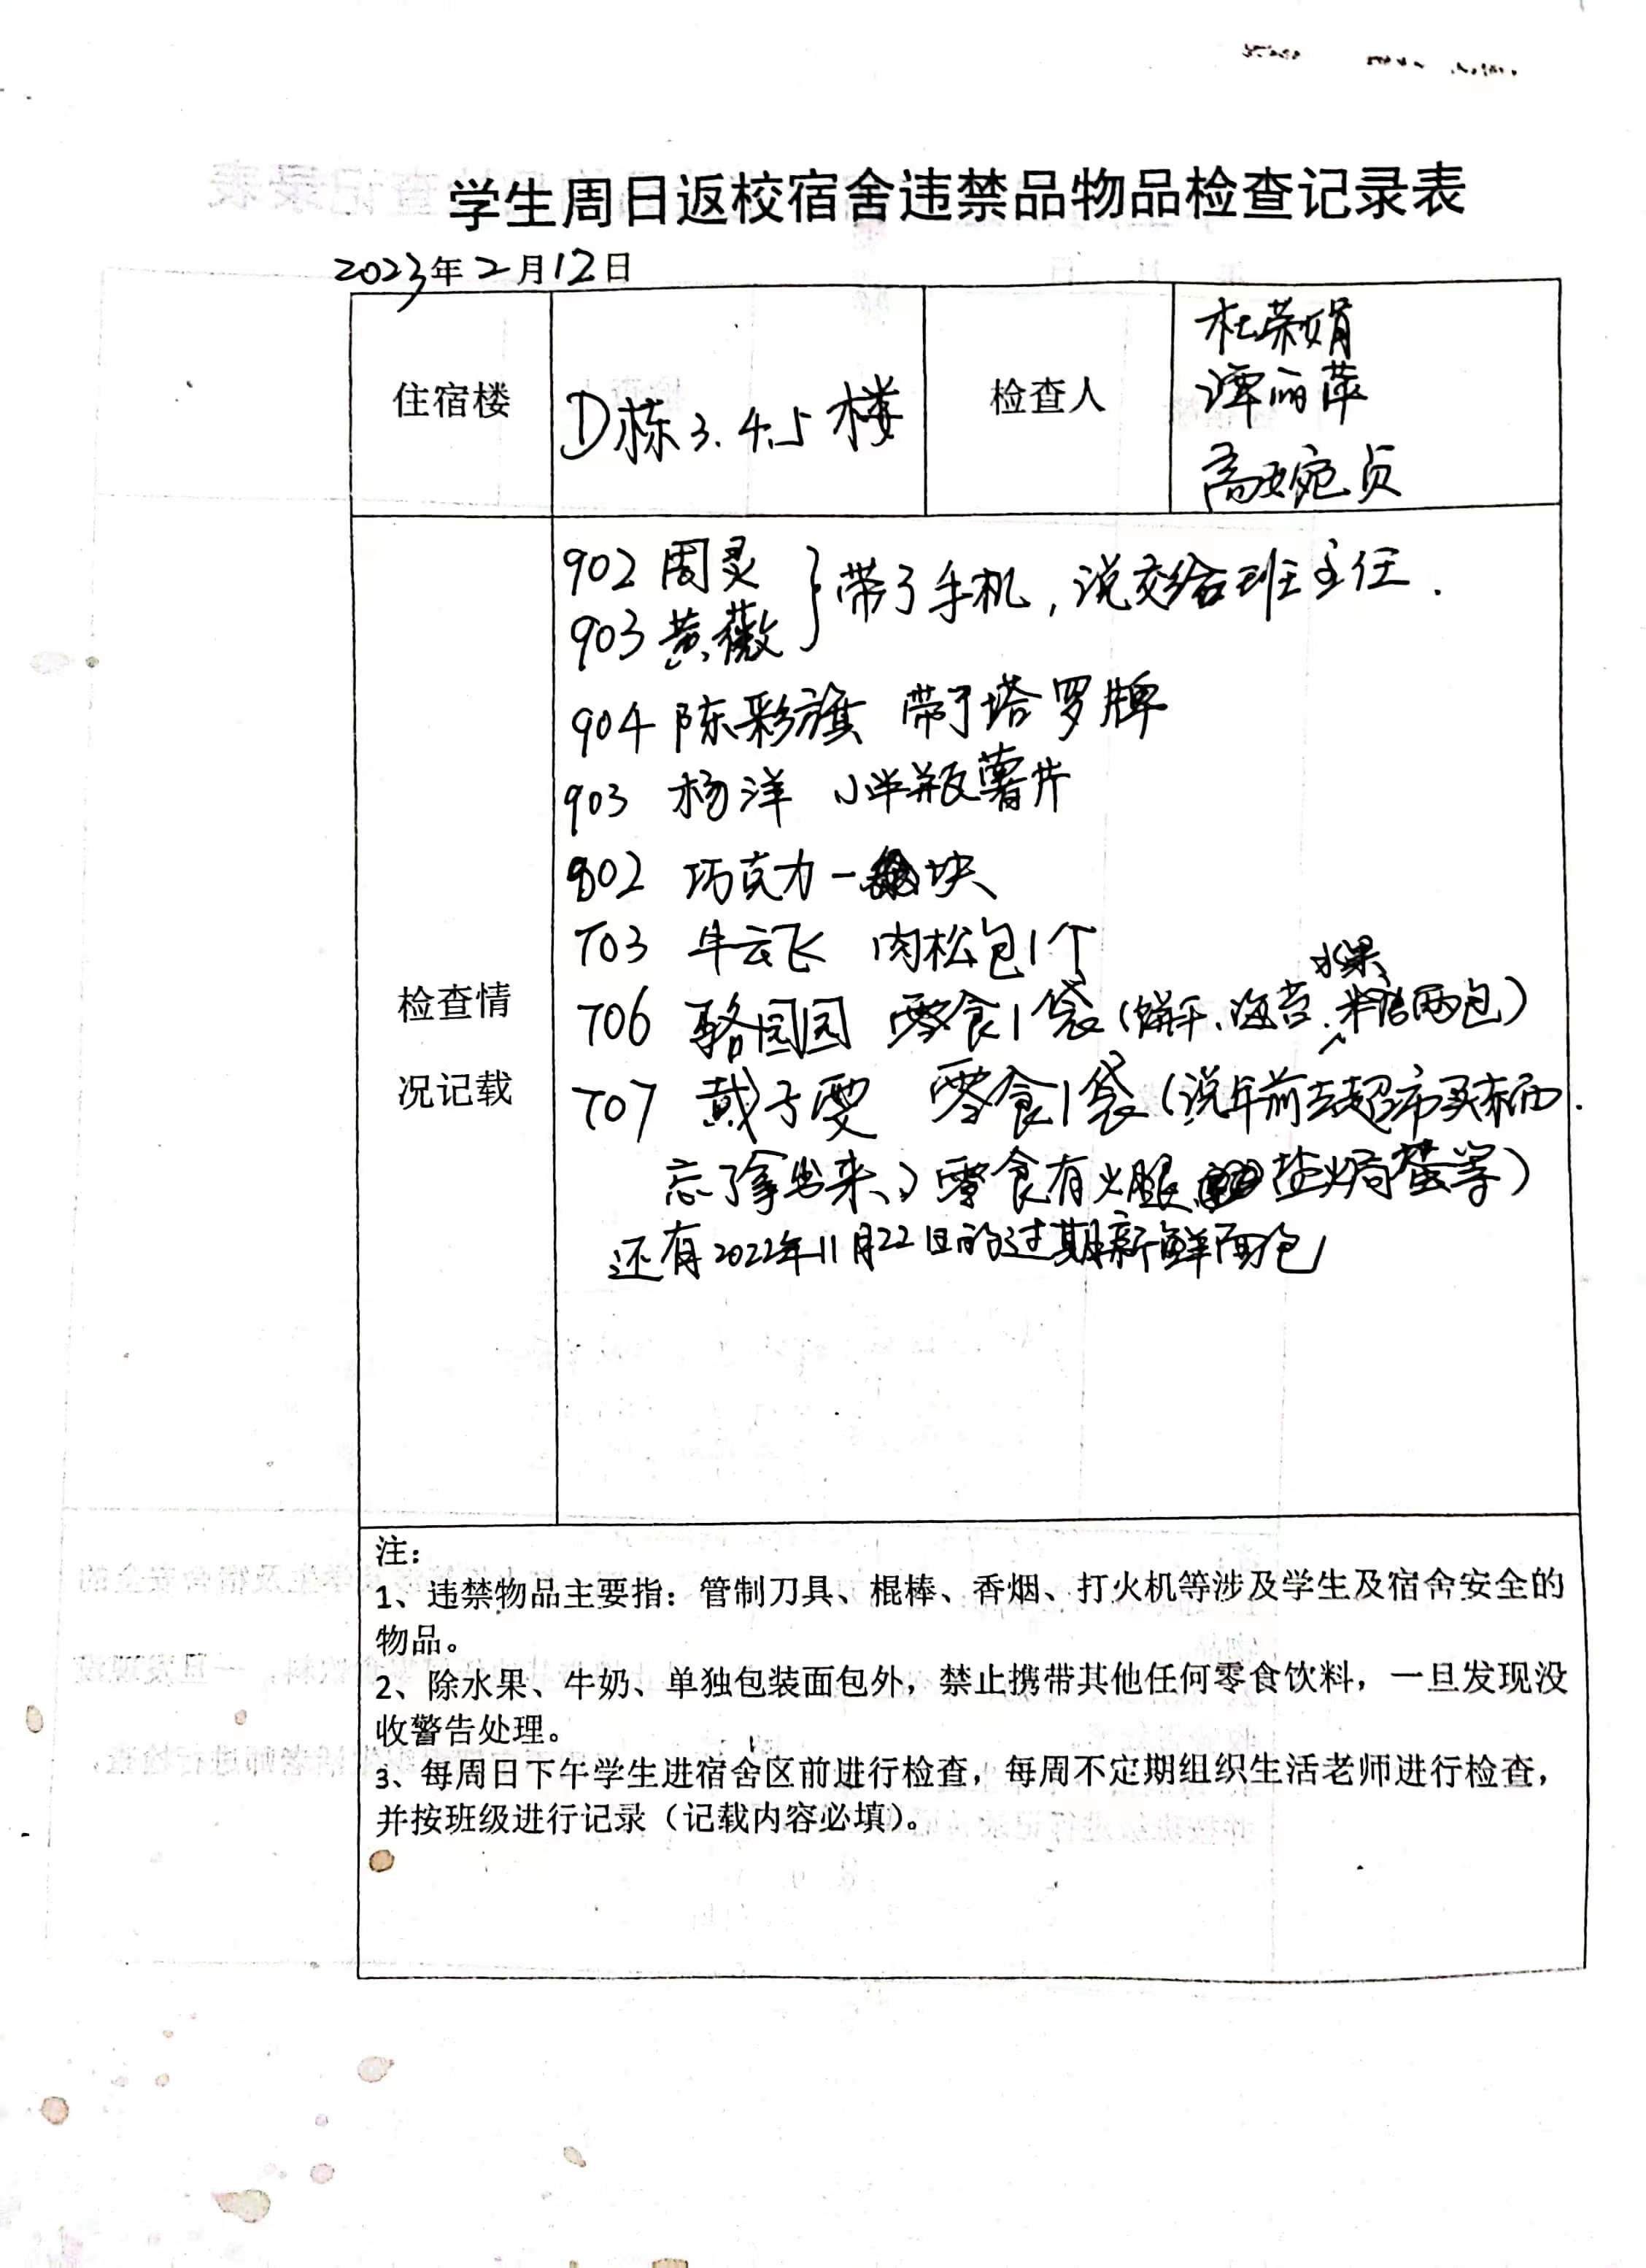 学生周日返校宿舍违禁品物品检查记录表
2023年2月12日
住宿楼
D栋3.4.5楼
检查人
杜荣娟
谭丽萍
高婉贞
检查情
况记载
902 周灵
903 黄薇
带了手机,说交给班主任.
904 陈彩旗 带了塔罗牌
903 杨洋 小半瓶薯片
802 巧克力一块
703 牛云飞 肉松包1个
706 骆园园 零食1袋(饼干、海苔、水果糖两包)
707 戴子雯 零食1袋(说年前去超市买东西.
忘了拿出来、)零食有火腿、盐焗蛋等)
还有2022年11月22日的过期新鲜面包
注:
1、违禁物品主要指:管制刀具、棍棒、香烟、打火机等涉及学生及宿舍安全的
物品。
2、除水果、牛奶、单独包装面包外,禁止携带其他任何零食饮料,一旦发现没
收警告处理。
3、每周日下午学生进宿舍区前进行检查,每周不定期组织生活老师进行检查,
并按班级进行记录(记载内容必填)。